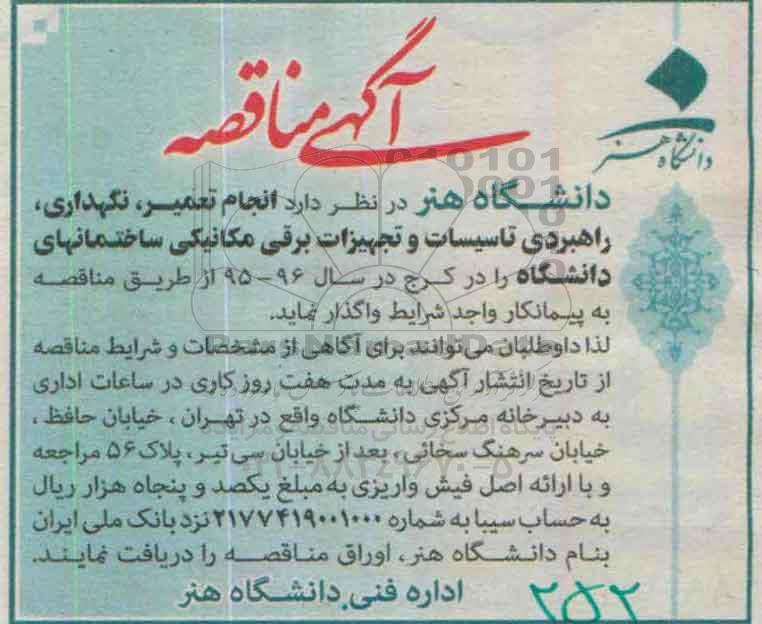 آگهی مناقصه
دانشگاه هنر
دانشگاه هنر در نظر دارد انجام تعمیر، نگهداری،
راهبردی تاسیسات و تجهیزات برقی مکانیکی ساختمانهای
دانشگاه را در کرج در سال ۹۶-۹۵ از طریق مناقصه
به پیمانکار واجد شرایط واگذار نماید.
لذا داوطلبان می‌توانند برای آگاهی از مشخصات و شرایط مناقصه
از تاریخ انتشار آگهی به مدت هفت روز کاری در ساعات اداری
به دبیرخانه مرکزی دانشگاه واقع در تهران ، خیابان حافظ ،
خیابان سرهنگ سخائی ، بعد از خیابان سی تیر ، پلاک ۵۶ مراجعه
و با ارائه اصل فیش واریزی به مبلغ یکصد و پنجاه هزار ریال
به حساب سیبا به شماره ۲۱۷۷۴۱۹۰۰۱۰۰۰ نزد بانک ملی ایران
بنام دانشگاه هنر ، اوراق مناقصه را دریافت نمایند.
اداره فنی دانشگاه هنر
۲۵۲